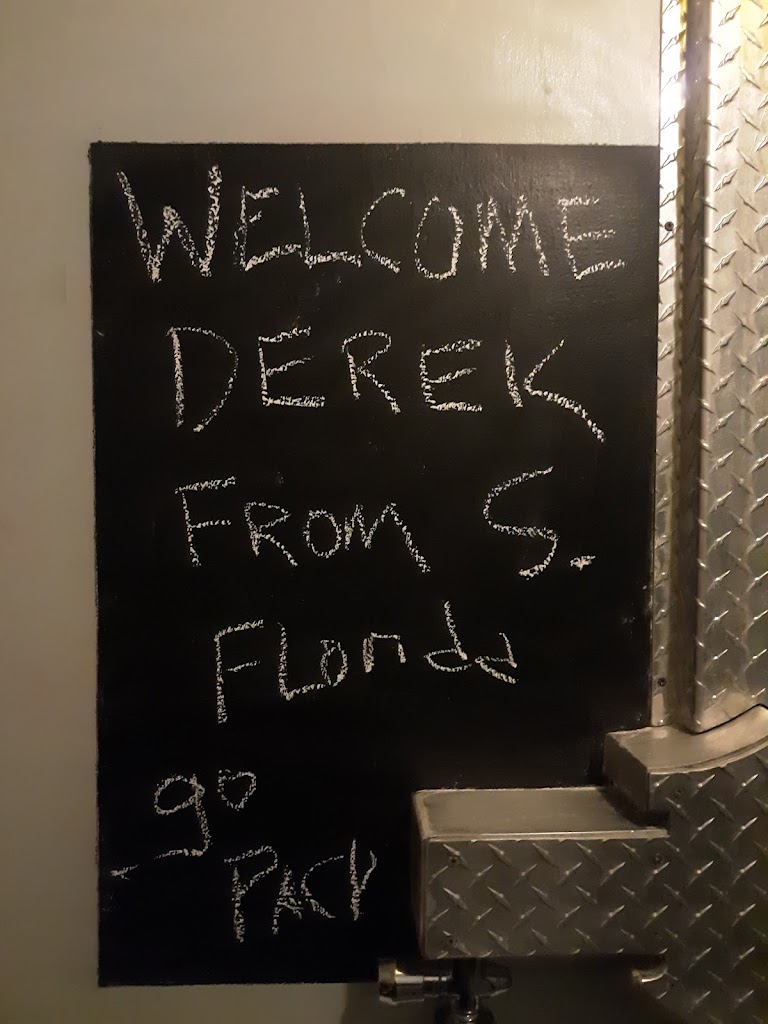 WELCOME
DEREK
FROM S.
FLORIDA
go
PACK